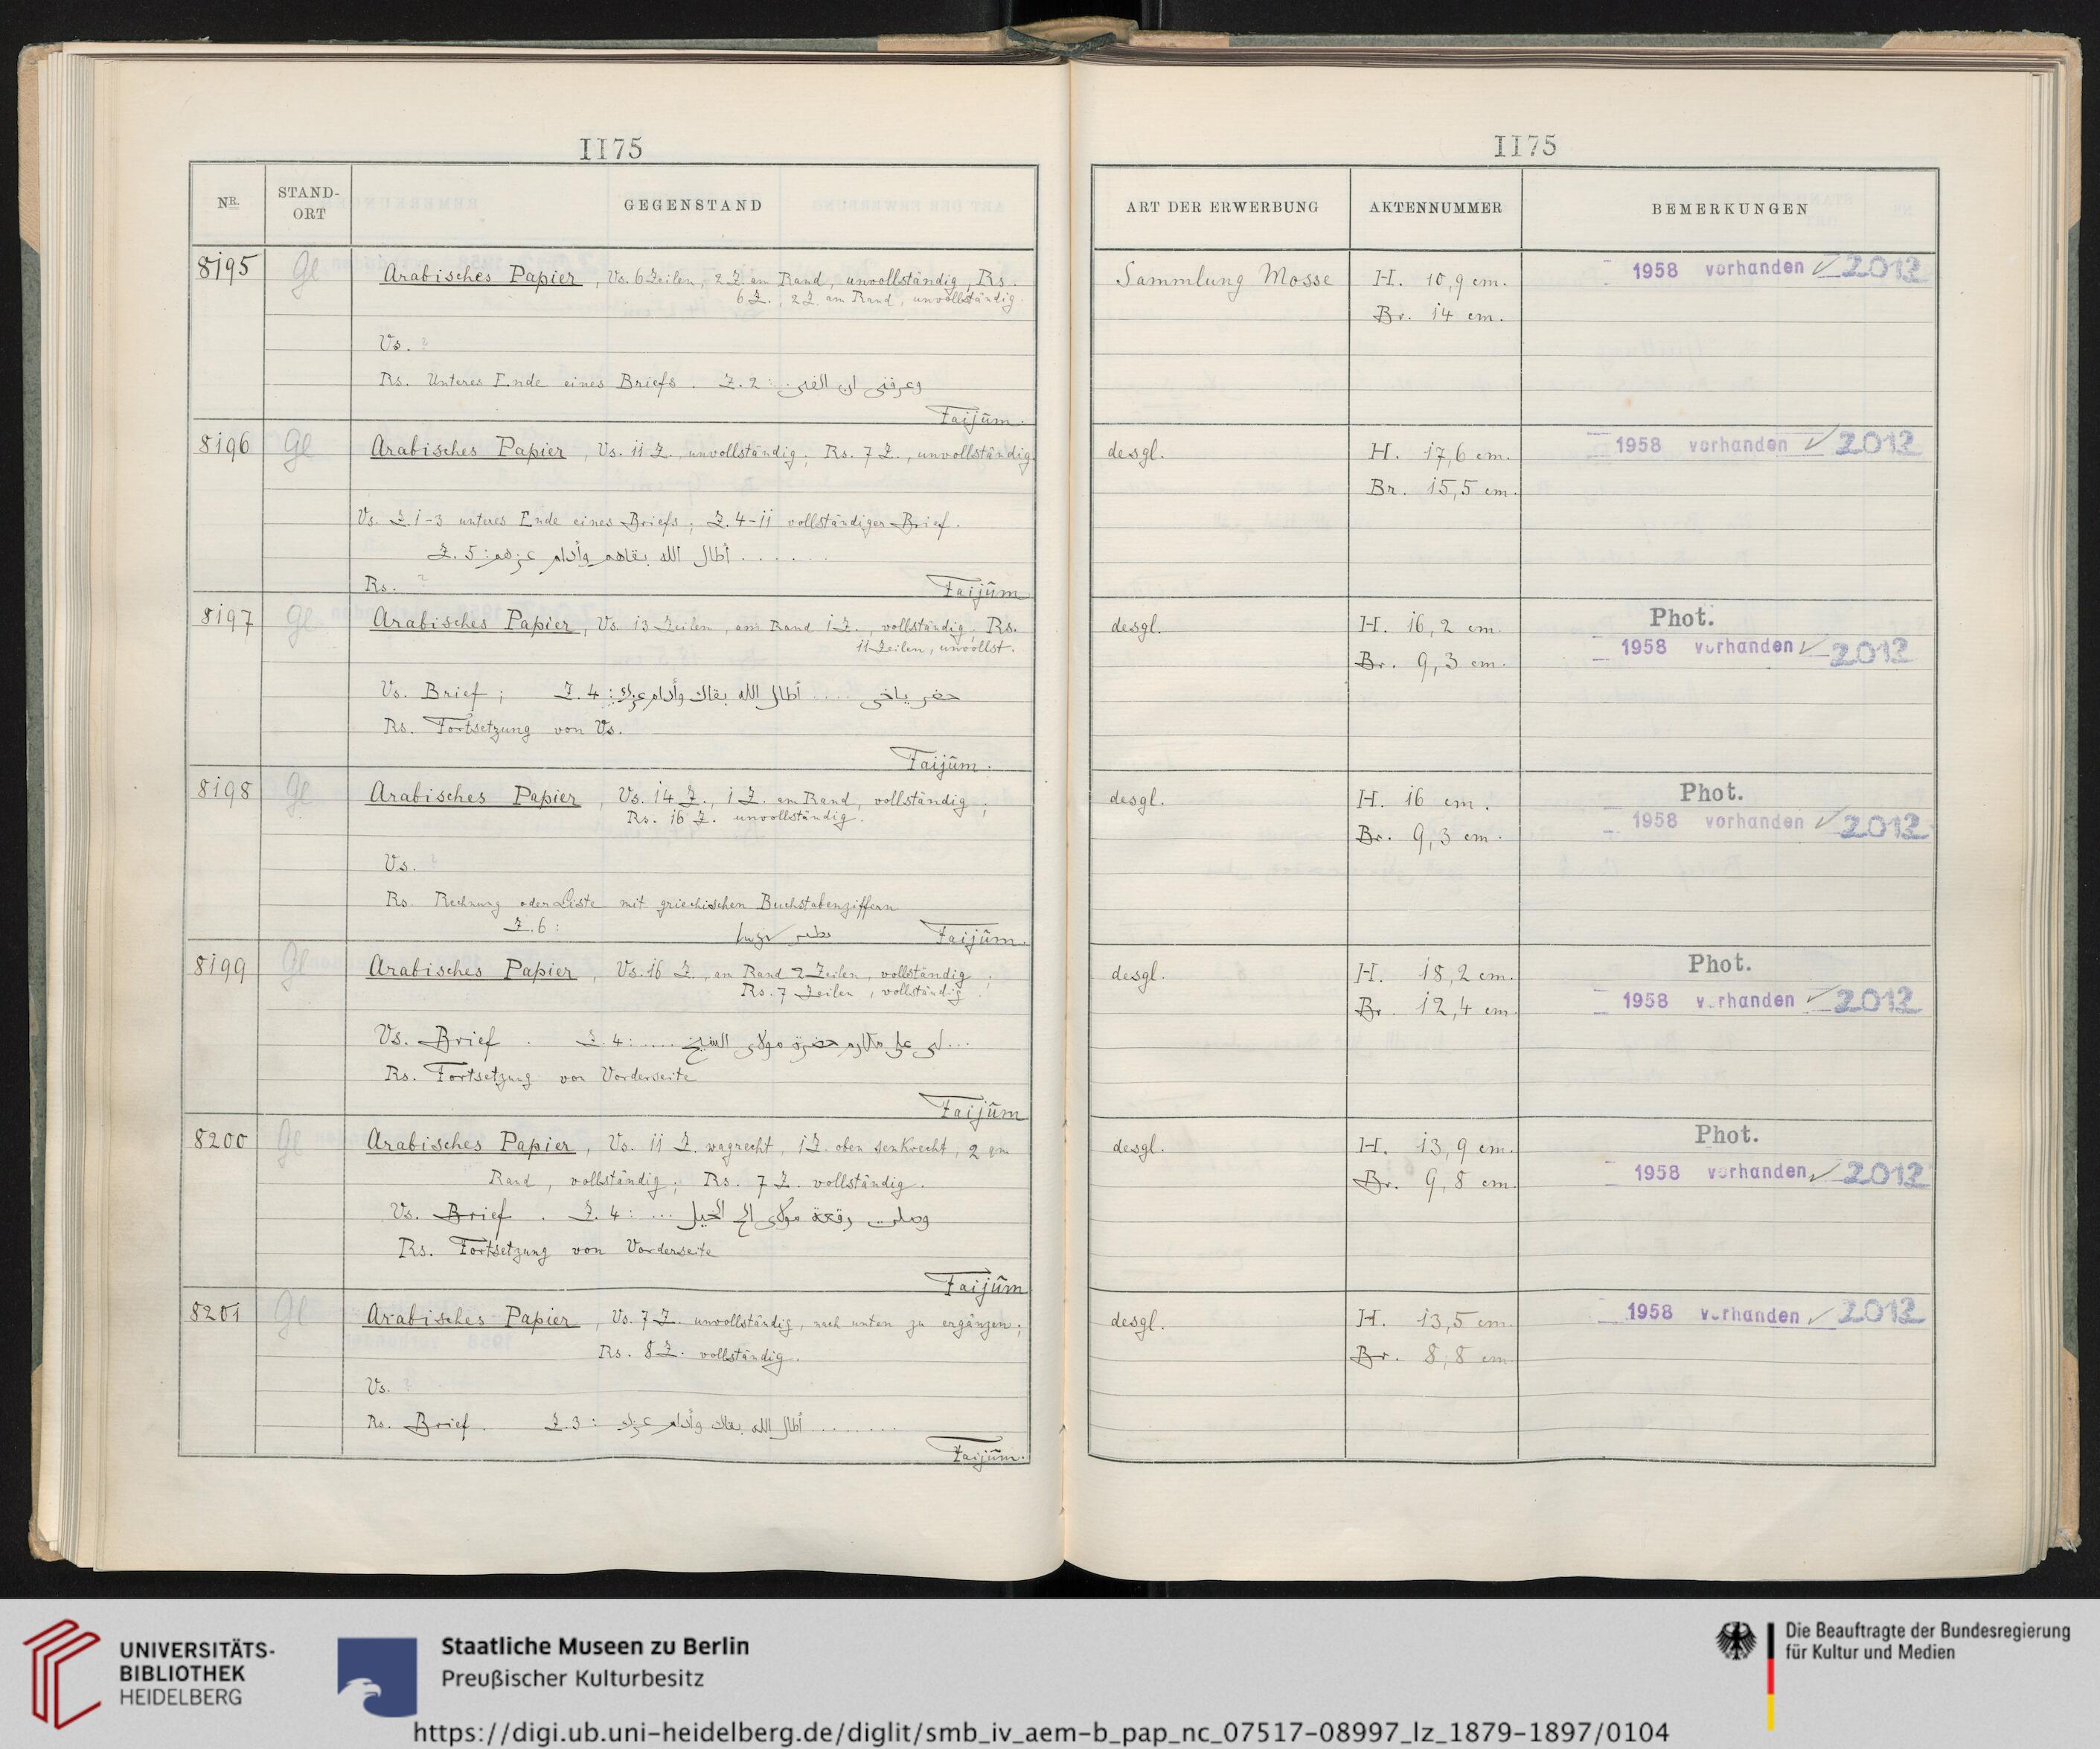 1175
NR.
STAND-
ORT
GEGENSTAND
8195
Gl
Arabisches Papier, Vs. 6 Zeilen, 2 Z. am Rand, unvollständig, Rs.
6 Z., 2 Z. am Rand, unvollständig.
Vs. ?
Rs. Unteres Ende eines Briefs. Z. 2: وعرفنى ان
Faijûm.
8196
Gl
Arabisches Papier, Vs. 11 Z. unvollständig; Rs. 7 Z., unvollständig.
Vs. Z. 1-3 unteres Ende eines Briefs; Z. 4-11 vollständiger Brief.
Z. 5: أطال الله بقاهم وأدام عزهم ......
Rs. ?
Faijûm
8197
Gl
Arabisches Papier, Vs. 13 Zeilen, am Rand 1 Z., vollständig; Rs.
11 Zeilen, unvollst.
Vs. Brief; Z. 4: أطال الله بقاك وأدام عزك ....
Rs. Fortsetzung von Vs.
Faijûm.
8198
Gl
Arabisches Papier, Vs. 14 Z., 1 Z. am Rand, vollständig;
Rs. 16 Z. unvollständig.
Vs. ?
Rs. Rechnung oder Liste mit griechischen Buchstabenziffern
Z. 6:
Faijûm.
8199
Gl
Arabisches Papier, Vs. 16 Z., am Rand 2 Zeilen, vollständig;
Rs. 7 Zeilen, vollständig.
Vs. Brief. Z. 4: ..... حضرة مولاى الشيخ
Rs. Fortsetzung von Vorderseite
Faijûm
8200
Gl
Arabisches Papier, Vs. 11 Z. wagrecht, 1 Z. oben senkrecht, 2 am
Rand, vollständig; Rs. 7 Z. vollständig.
Vs. Brief. Z. 4: ... وصلت رقعة مولاى
Rs. Fortsetzung von Vorderseite
Faijûm
8201
Gl
Arabisches Papier, Vs. 7 Z. unvollständig, nach unten zu ergänzen;
Rs. 8 Z. vollständig.
Vs. ?
Rs. Brief. Z. 3: أطال الله بقاك وأدام عزك ........
Faijûm.
1175
ART DER ERWERBUNG
AKTENNUMMER
BEMERKUNGEN
Sammlung Mosse
H. 10,9 cm.
Br. 14 cm.
1958 vorhanden ✓ 2012
desgl.
H. 17,6 cm.
Br. 15,5 cm.
1958 vorhanden ✓ 2012
desgl.
H. 16,2 cm.
Br. 9,3 cm.
Phot.
1958 vorhanden ✓ 2012
desgl.
H. 16 cm.
Br. 9,3 cm.
Phot.
1958 vorhanden ✓ 2012
desgl.
H. 18,2 cm.
Br. 12,4 cm.
Phot.
1958 vorhanden ✓ 2012
desgl.
H. 13,9 cm.
Br. 9,8 cm.
Phot.
1958 vorhanden ✓ 2012
desgl.
H. 13,5 cm.
Br. 8,8 cm
1958 vorhanden ✓ 2012
UNIVERSITÄTS-
BIBLIOTHEK
HEIDELBERG
Staatliche Museen zu Berlin
Preußischer Kulturbesitz
Die Beauftragte der Bundesregierung
für Kultur und Medien
https://digi.ub.uni-heidelberg.de/diglit/smb_iv_aem-b_pap_nc_07517-08997_lz_1879-1897/0104